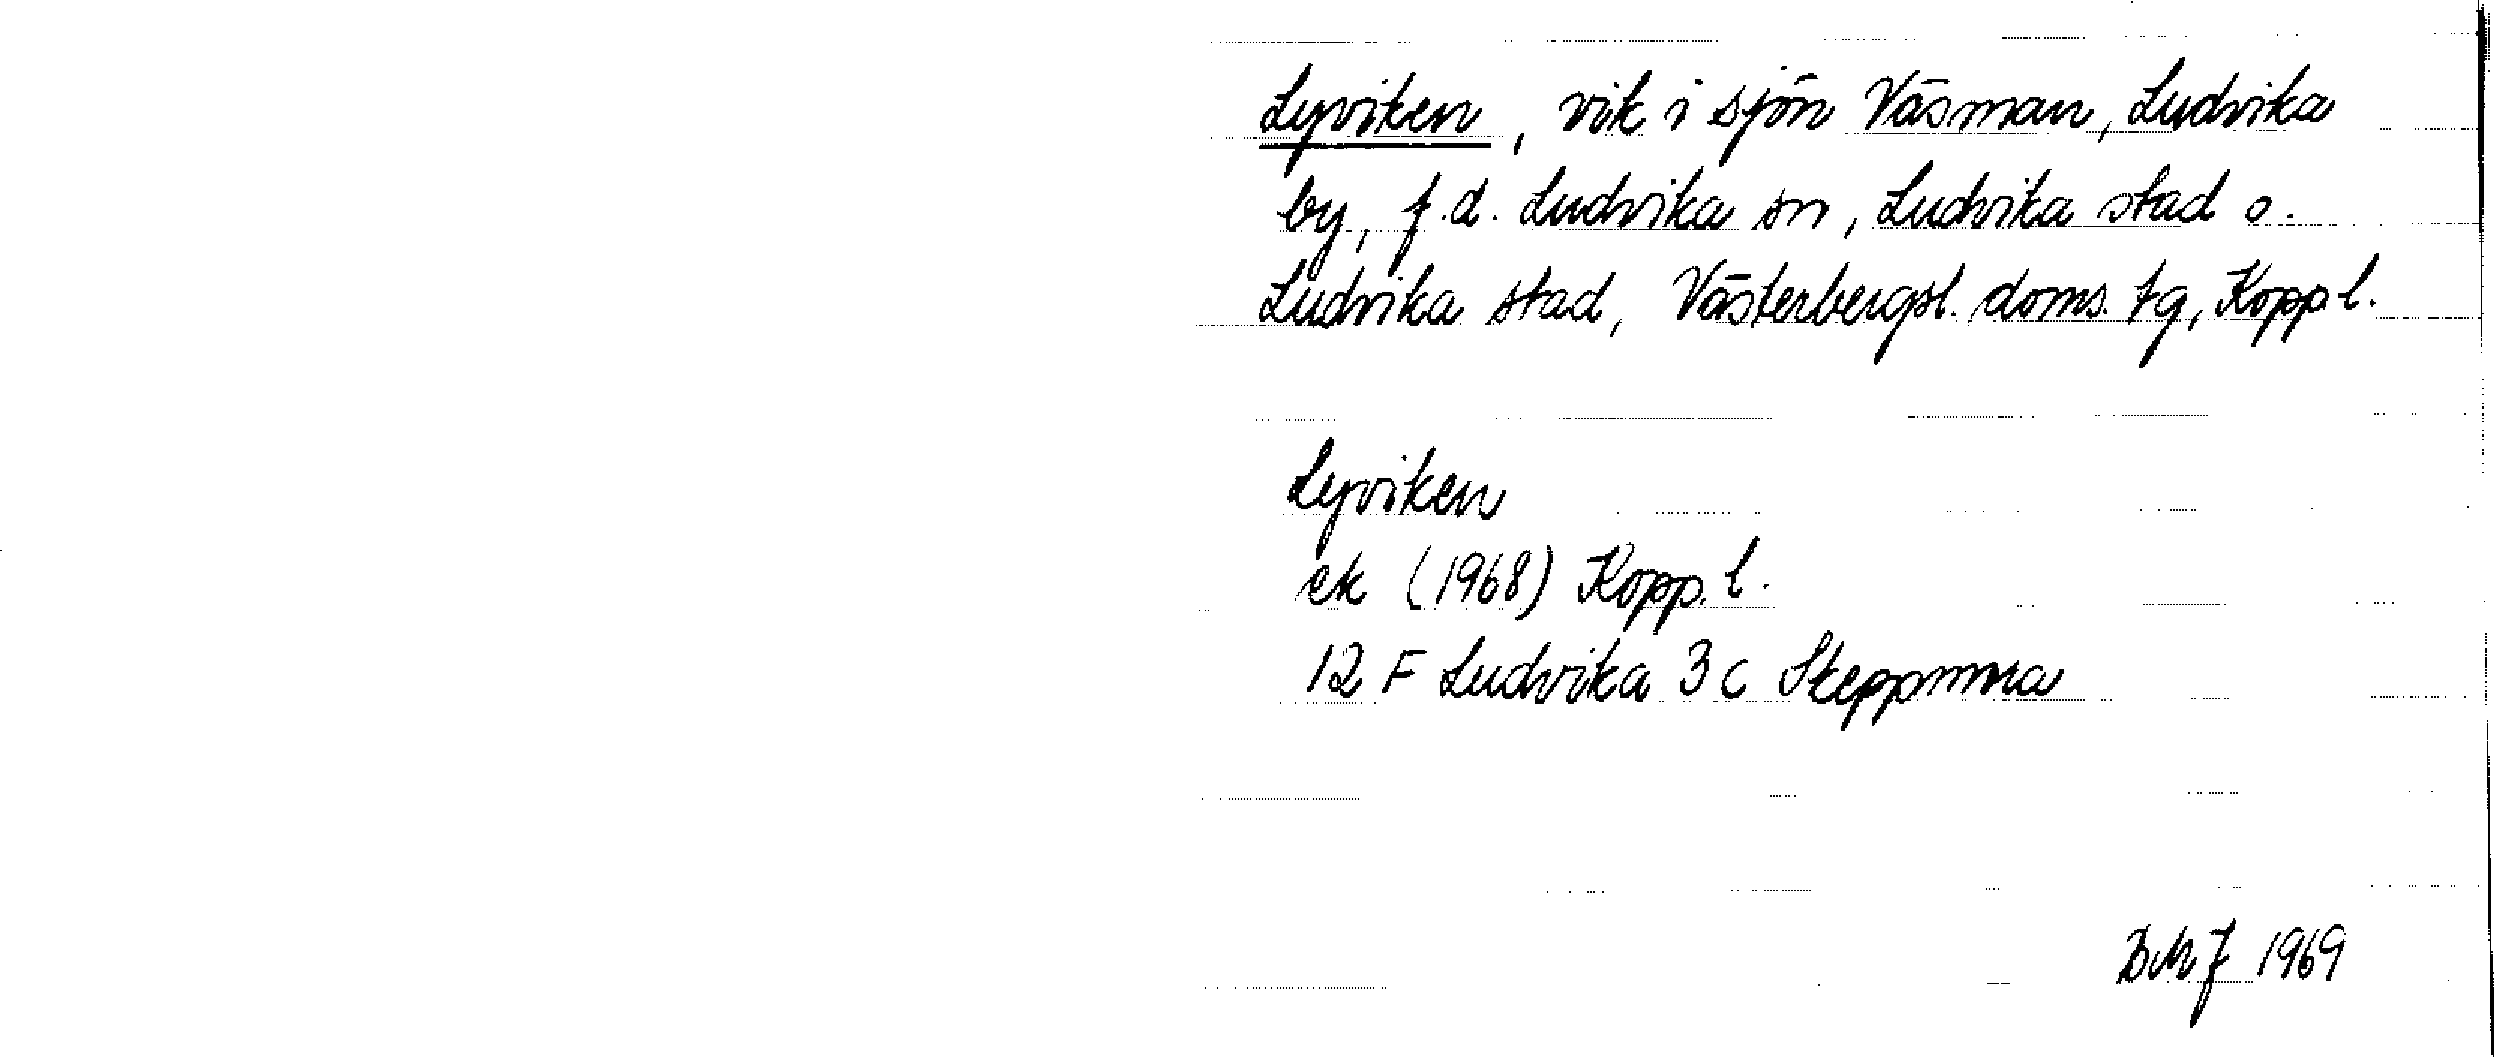 Lyviken, vik i sjön Väsman, Ludvika
by, f.d. Ludvika sn, Ludvika stad o.
Ludvika stad, Västerbergsl. doms. tg, Kopp. l.
Lyviken
ek (1968) Kopp. l.
12 F Ludvika 3 c Skeppmora
BMJ 1969